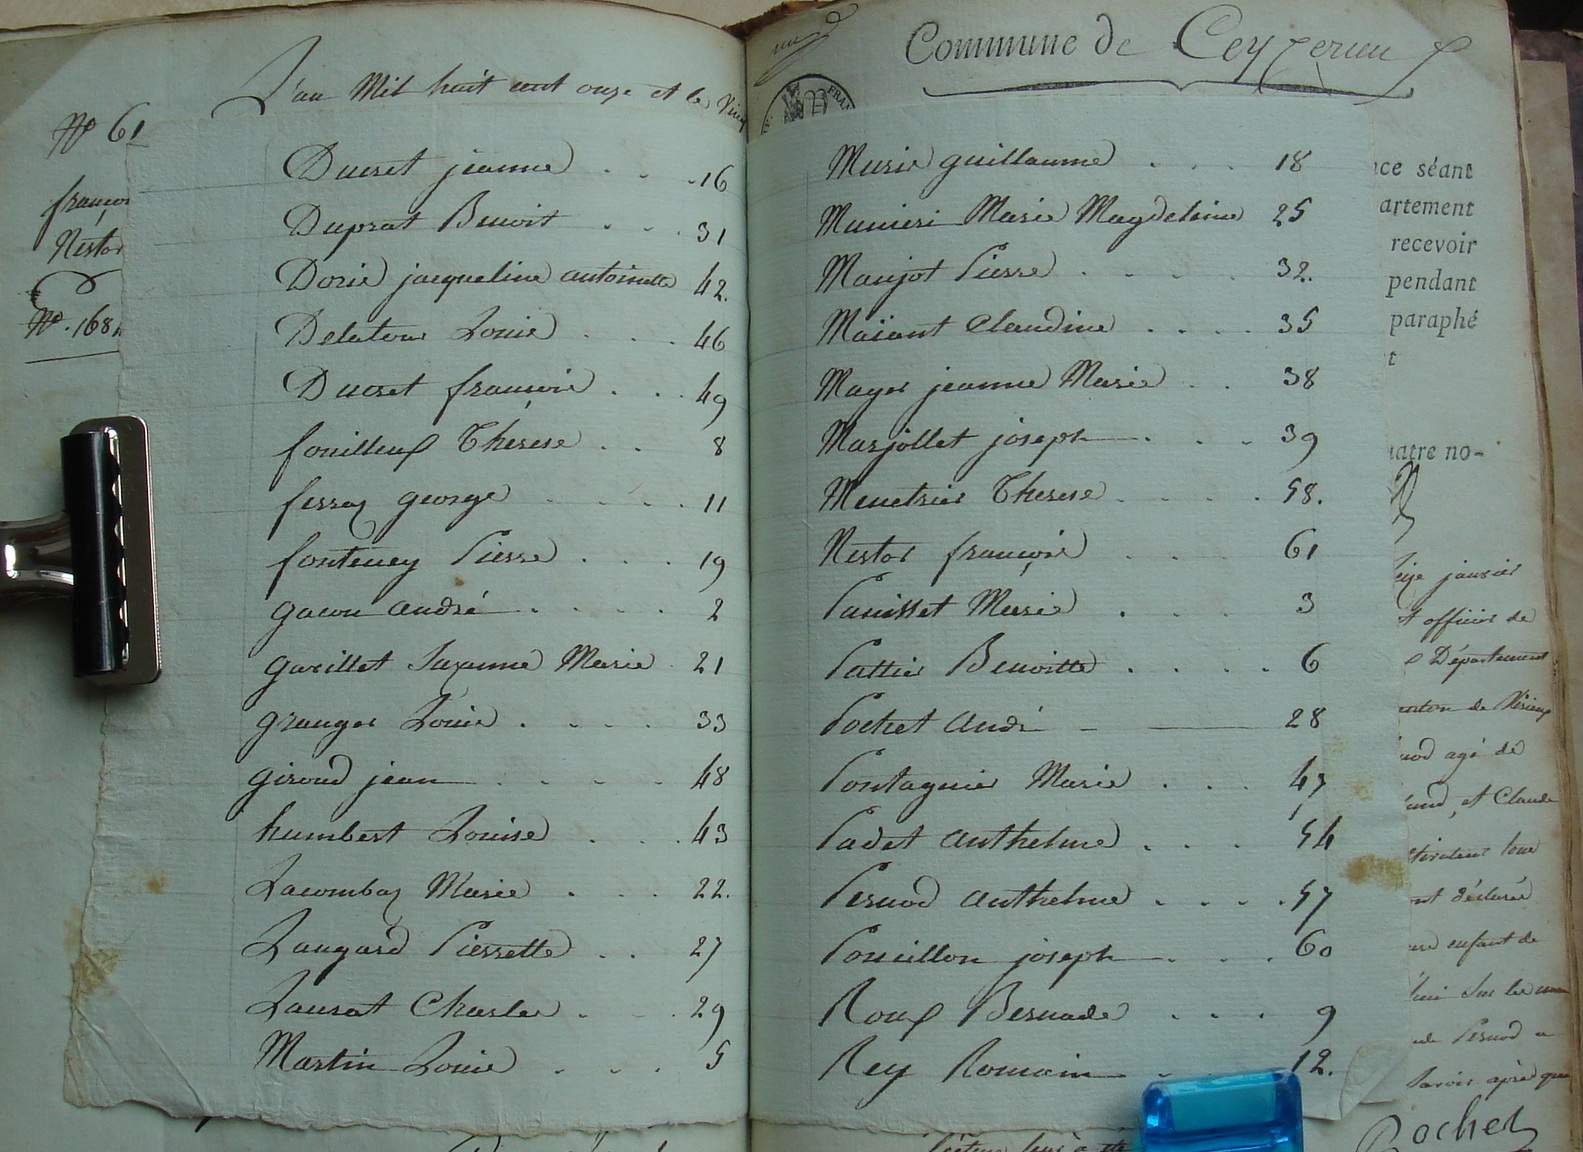 L'an Mil huit cent onze et le Vingt
N° 61
françois
Nestor
N°. 168
Ducret jeanne . . . 16
Duprat Benoit . . . 31
Dorie jacqueline antoinette 42.
Delatour Louis . . . 46
Ducret françois . . . 49
fouilleux Thérese . . 8
ferraz george . . . . 11
fonteney Pierre . . . 19
gacon andré . . . . . 2
gueillet Suzanne Marie . 21
granger Louis . . . . 33
giroud jean . . . . 48
humbert Louise . . . 43
Lacombaz Marie . . . 22.
Laugard Pierrette . . 27
Laurat Charles . . . 29
Martin Louis . . . 5
Commune de Ceyzerieu
Murie guillaume . . . 18
Munieri Marie Magdeleine 25
Maujot Pierre . . . . 32.
Maïant Claudine . . . . 35
Mayer jeanne Marie . . 38
Marjollet joseph . . . 39
Menetrier Therese . . . . 58.
Nestor françois . . . 61
Panisset Marie . . . 3
Pattier Benoitte . . . . 6
Pochet André - 28
Pontagnier Marie . . . 47
Padet anthelme . . . 54
Pernod anthelme . . . . 57
Pouillon joseph . . . 60
Roux Bernade . . . 9
Rey Romain . . 12.
nce séant
artement
recevoir
pendant
paraphé
t
uatre no-
janvier
officier de
Département
canton de
agé de
et Claude
déclaré
enfant de
Pernod a
après que
Rochet